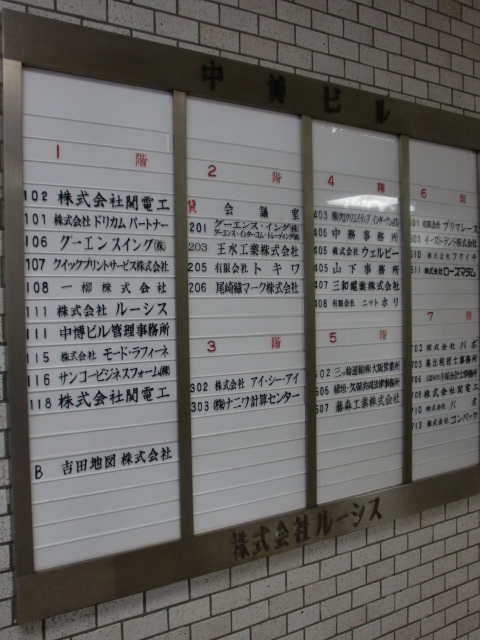 中博ビル
1 階
102 株式会社関電工
101 株式会社 ドリカム パートナー
106 グーエンスイング㈱
107 クイックプリントサービス株式会社
108 一柳株式会社
111 株式会社 ルーシス
111 中博ビル管理事務所
115 株式会社 モード・ラフィーネ
116 サンコービジネスフォーム㈱
118 株式会社関電工
B 吉田地図株式会社
2 階
貸会議室
201 グーエンス・イング㈱
グーエンス・インターコム・トレーディング㈱
203 王水工業株式会社
205 有限会社 トキワ
206 尾崎鏽マーク株式会社
3 階
302 株式会社 アイ・シー・アイ
303 ㈱ナニワ計算センター
4 階
403
405 中務事務所
405 株式会社 ウェルビー
405 山下事務所
407 三和電業株式会社
408 有限会社 ニット ホリ
5 階
502 三ッ輪運輸㈱大阪営業所
507 藤森工業株式会社
6 階
601 有限会社 プリマレース
603 イーストランド株式会社
610 株式会社 フクイチ
611 株式会社ローズマダム
7 階
702 株式会社 パボ
703 税理士事務所
708 株式会社関電工
710 株式会社 パボ
713 株式会社 コンパック
株式会社ルーシス